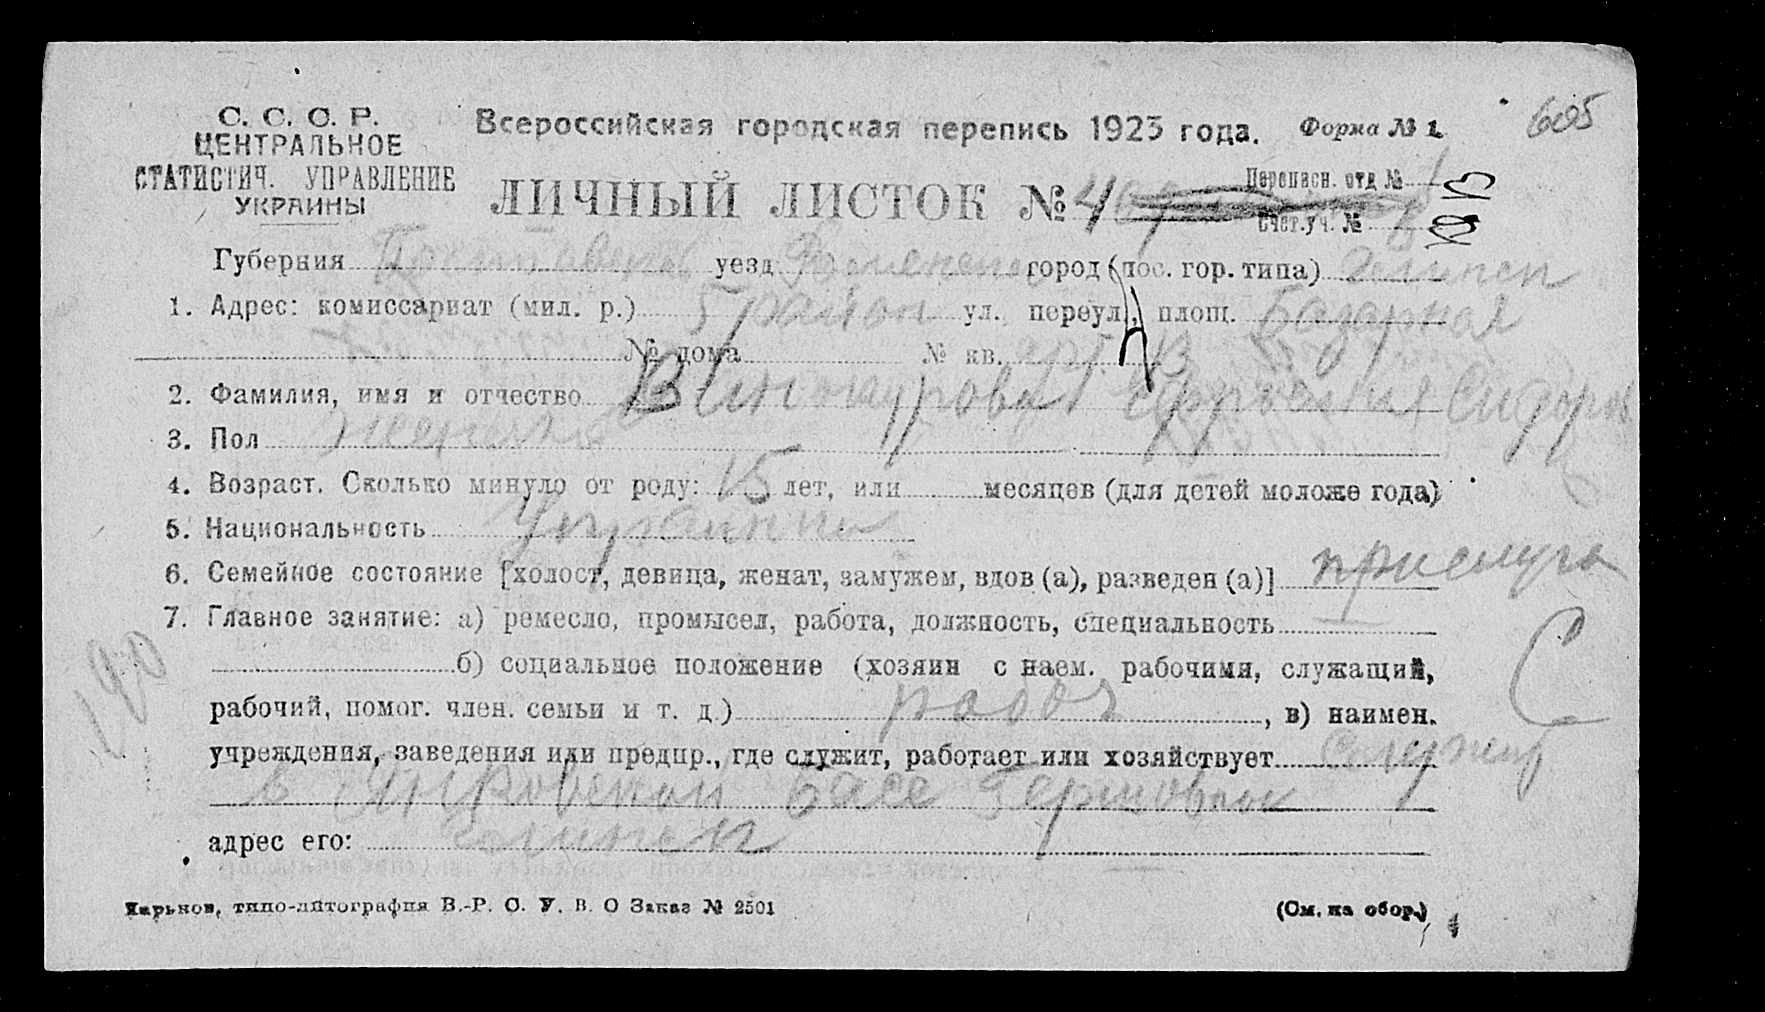 С. С. С. Р.
ЦЕНТРАЛЬНОЕ
СТАТИСТИЧ. УПРАВЛЕНИЕ
УКРАИНЫ
Всероссийская городская перепись 1923 года. Форма № 1. 605
Переписн. отд №
ЛИЧНЫЙ ЛИСТОК №
Счет. уч. №
Губерния Полтавск уезд Роменск город (пос. гор. типа)
1. Адрес: комиссариат (мил. р.) 5 район ул. переул., площ. Базарная
№ дома № кв.
2. Фамилия, имя и отчество Винокурова Ефросиния Сидоров
3. Пол женский
4. Возраст. Сколько минуло от роду: 15 лет, или месяцев (для детей моложе года)
5. Национальность Украинка
6. Семейное состояние [холост, девица, женат, замужем, вдов (а), разведен (а)] прислуга
7. Главное занятие: а) ремесло, промысел, работа, должность, специальность
190
б) социальное положение (хозяин с наем. рабочими, служащий,
С
рабочий, помог. член. семьи и т. д.) рабоч , в) наимен.
учреждения, заведения или предпр., где служит, работает или хозяйствует служит
в
адрес его:
Харьков, типо-литография В.-Р. С. У. В. О Заказ № 2501
(См. на обор.)